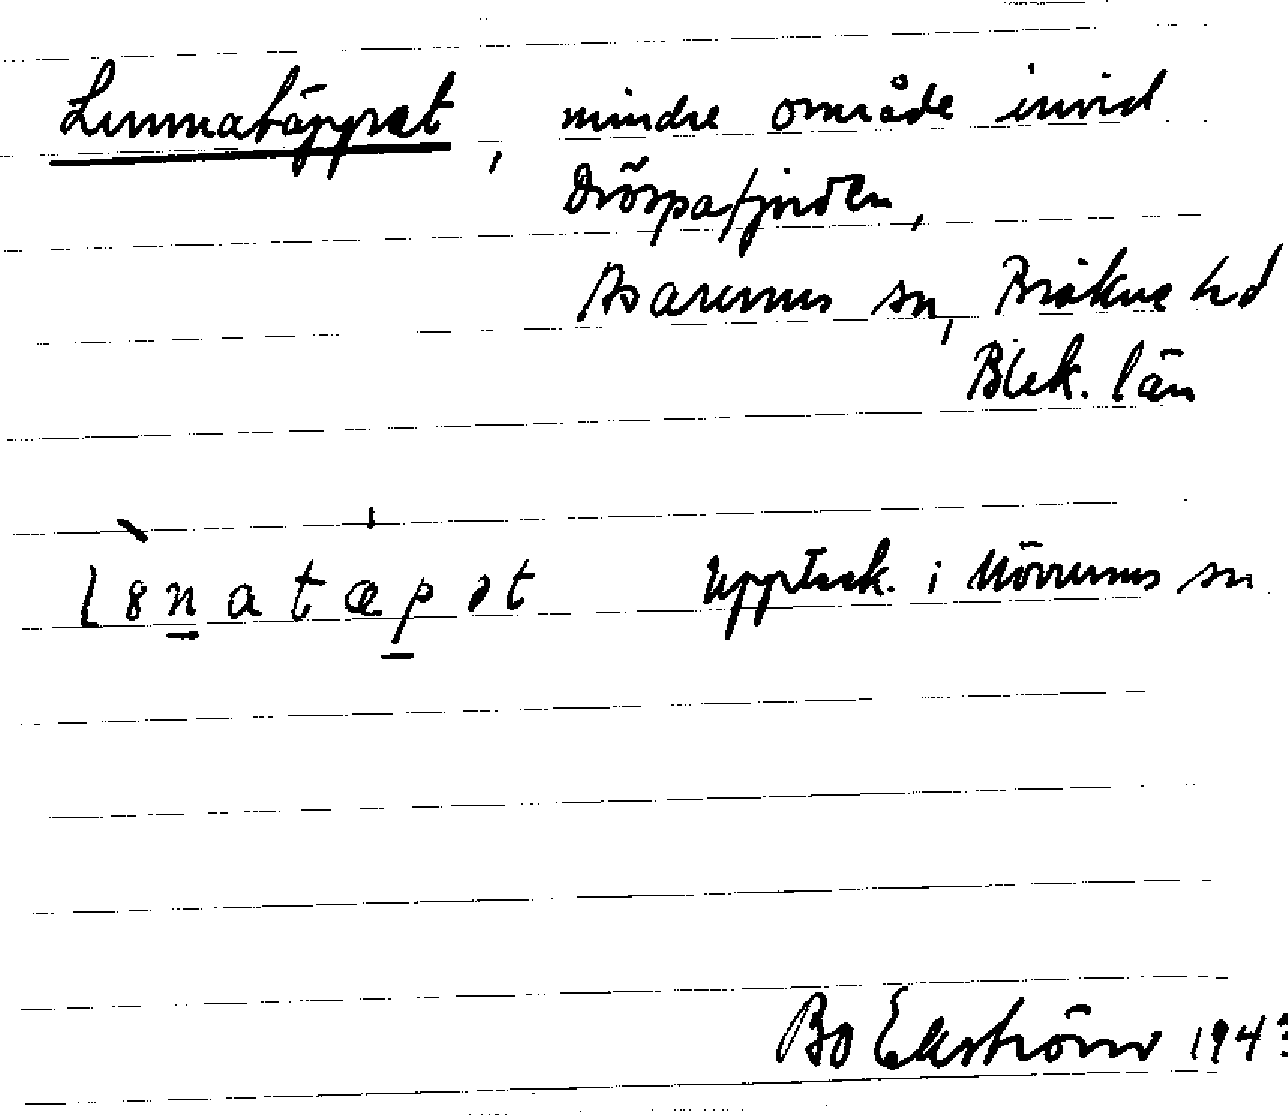 Lunnatäppet, mindre område invid
Dröspafjorden,
Asarums sn, Bräkne hd
Blek. län
l8natæpət uppteck. i Mörrums sn
Bo Ekström 1943